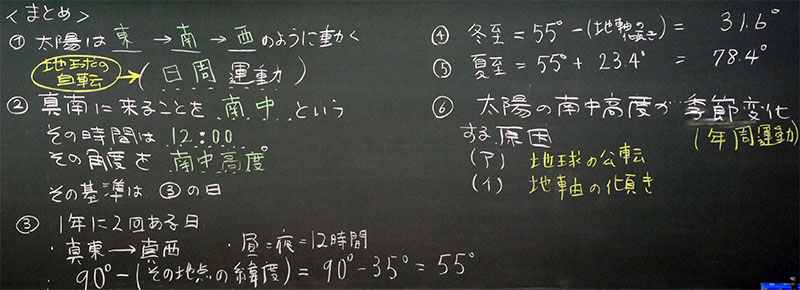 <まとめ>
① 太陽は 東 → 南 → 西 のように動く
地球の自転 → (日周運動)
② 真南に来ることを 南中 という
その時間は 12:00
その角度を 南中高度。
その基準は ③の日
③ 1年に2回ある日
・真東→真西 ・昼=夜=12時間
・90°-(その地点の緯度)=90°-35°=55°
④ 冬至=55°-(地軸の傾き)= 31.6°
⑤ 夏至=55°+23.4° = 78.4°
⑥ 太陽の南中高度が季節変化
する原因 (年周運動)
(ア) 地球の公転
(イ) 地軸の傾き